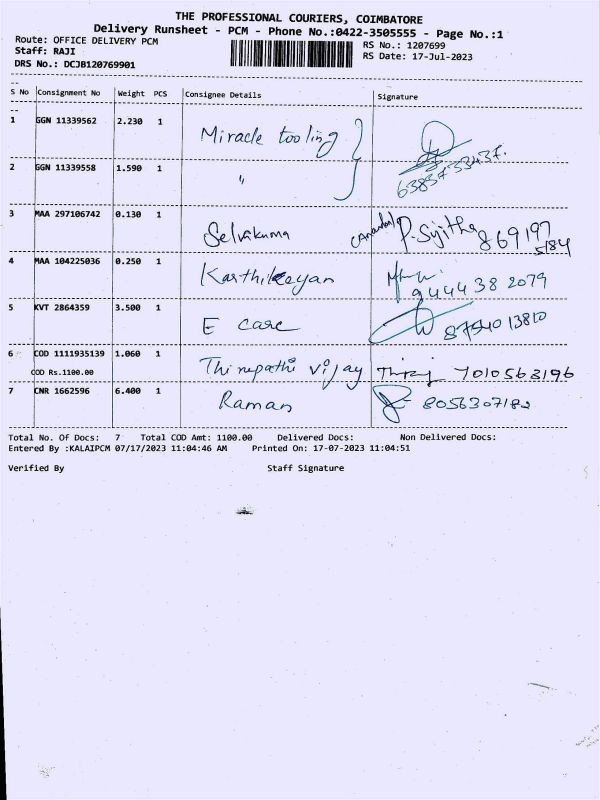 THE PROFESSIONAL COURIERS, COIMBATORE
Delivery Runsheet - PCM - Phone No.:0422-3505555 - Page No.:1
Route: OFFICE DELIVERY PCM
RS No.: 1207699
Staff: RAJI
RS Date: 17-Jul-2023
DRS No.: DCJB120769901
S No Consignment No Weight PCS Consignee Details Signature
1 GGN 11339562 2.230 1 Miracle tooling
2 GGN 11339558 1.590 1 "
3 MAA 297106742 0.130 1 Selvakuma P. Sujitha 869197
5184
4 MAA 104225036 0.250 1 Karthikeyan 9444382079
5 KVT 2864359 3.500 1 E care 8754013810
6 COD 1111935139 1.060 1 Thirupathi vijay 7010563196
COD Rs.1100.00
7 CNR 1662596 6.400 1 Raman 8056307182
Total No. Of Docs: 7 Total COD Amt: 1100.00 Delivered Docs: Non Delivered Docs:
Entered By :KALAIPCM 07/17/2023 11:04:46 AM Printed On: 17-07-2023 11:04:51
Verified By Staff Signature